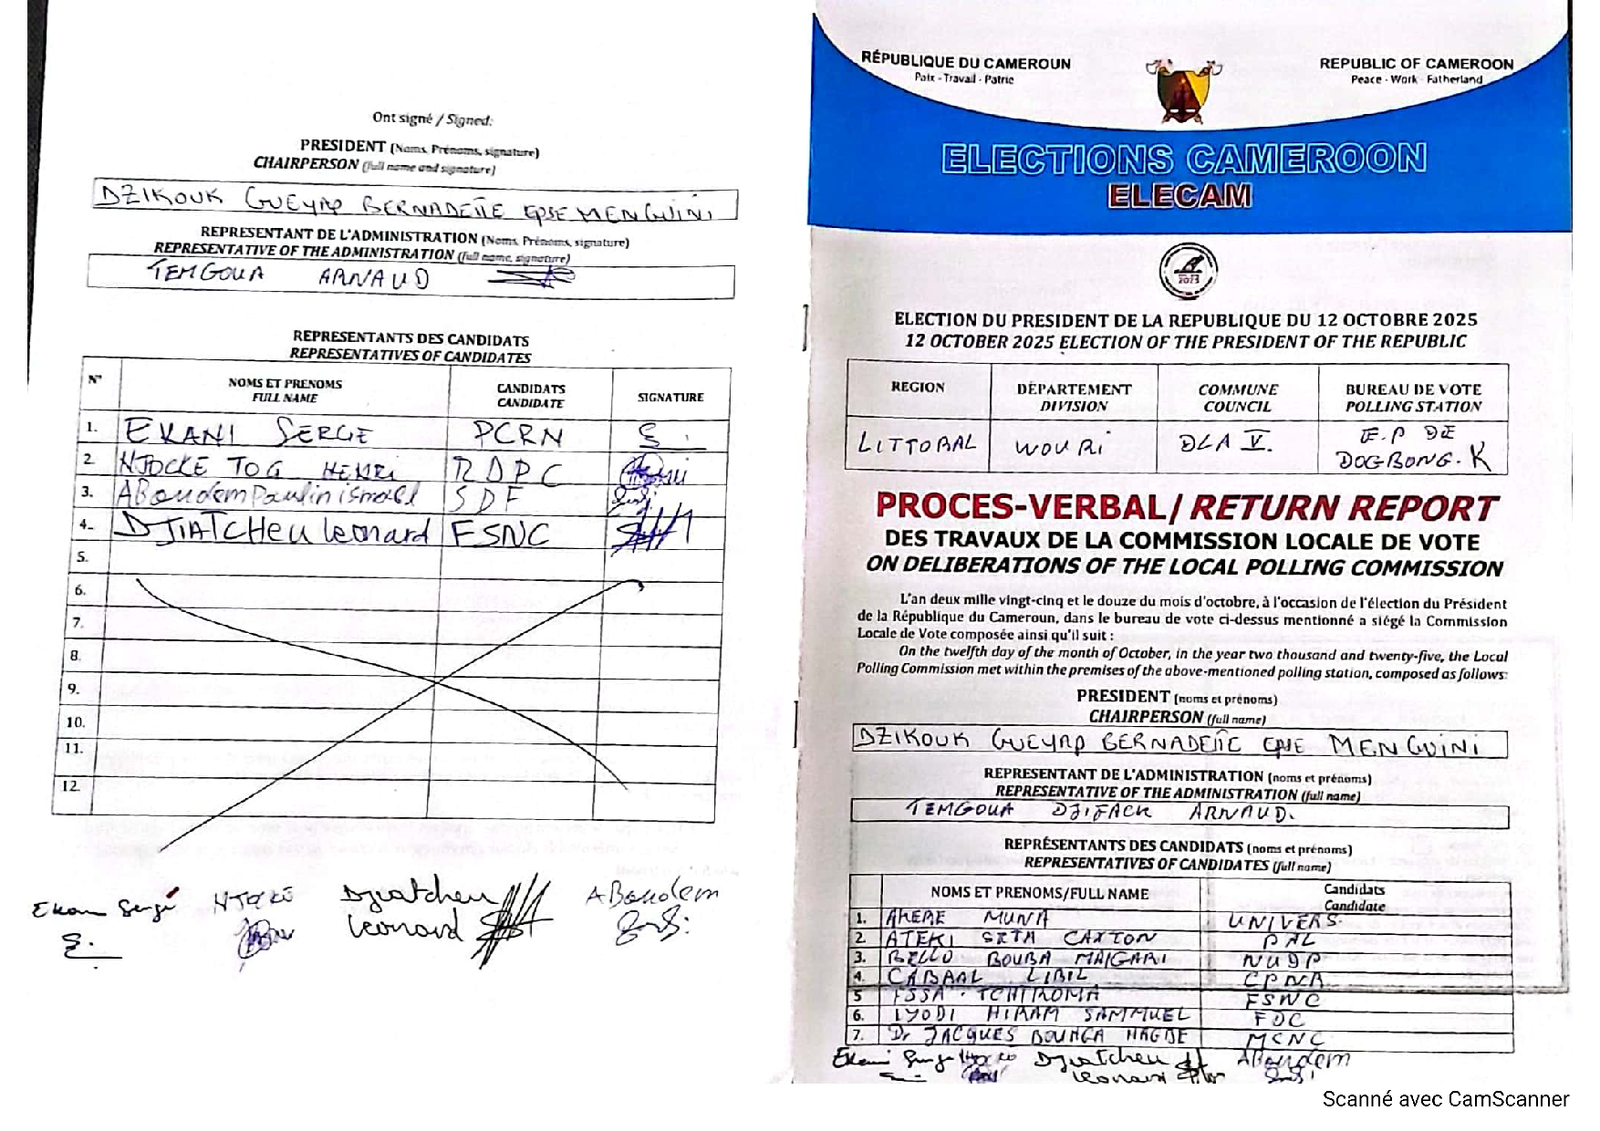 Ont signé / Signed:
PRESIDENT (Noms, Prénoms, signature)
CHAIRPERSON (full name and signature)
DZIKOUK GUEYAP BERNADETTE EPSE MENGUINI
REPRESENTANT DE L'ADMINISTRATION (Noms, Prénoms, signature)
REPRESENTATIVE OF THE ADMINISTRATION (full name, signature)
TEMGOUA ARNAUD
REPRESENTANTS DES CANDIDATS
REPRESENTATIVES OF CANDIDATES
N° NOMS ET PRENOMS FULL NAME CANDIDATS CANDIDATE SIGNATURE
1. EKANI SERGE PCRN
2. NJOCKE TOG HENRI RDPC
3. ABoudem Paulin ismael SDF
4. DJIATCHEU Leonard FSNC
5.
6.
7.
8.
9.
10.
11.
12.
Ekani Serge NJOCKE Djiatcheu ABoudem
Leonard
RÉPUBLIQUE DU CAMEROUN
Paix - Travail - Patrie
REPUBLIC OF CAMEROON
Peace - Work - Fatherland
ELECTIONS CAMEROON
ELECAM
2025
ELECTION DU PRESIDENT DE LA REPUBLIQUE DU 12 OCTOBRE 2025
12 OCTOBER 2025 ELECTION OF THE PRESIDENT OF THE REPUBLIC
REGION DÉPARTEMENT DIVISION COMMUNE COUNCIL BUREAU DE VOTE POLLING STATION
LITTORAL WOURI DLA V. E.P DE DOGBONG. K
PROCES-VERBAL/ RETURN REPORT
DES TRAVAUX DE LA COMMISSION LOCALE DE VOTE
ON DELIBERATIONS OF THE LOCAL POLLING COMMISSION
L'an deux mille vingt-cinq et le douze du mois d'octobre, à l'occasion de l'élection du Président
de la République du Cameroun, dans le bureau de vote ci-dessus mentionné a siégé la Commission
Locale de Vote composée ainsi qu'il suit :
On the twelfth day of the month of October, in the year two thousand and twenty-five, the Local
Polling Commission met within the premises of the above-mentioned polling station, composed as follows:
PRESIDENT (noms et prénoms)
CHAIRPERSON (full name)
DZIKOUK GUEYAP BERNADETTE EPSE MENGUINI
REPRESENTANT DE L'ADMINISTRATION (noms et prénoms)
REPRESENTATIVE OF THE ADMINISTRATION (full name)
TEMGOUA DJIFACK ARNAUD.
REPRÉSENTANTS DES CANDIDATS (noms et prénoms)
REPRESENTATIVES OF CANDIDATES (full name)
NOMS ET PRENOMS/FULL NAME Candidats Candidate
1. AKERE MUNA UNIVERS
2. ATEKI SETA CAXTON PAL
3. BELLO BOUBA MAIGARI NUDP
4. CABRAL LIBIL CPNR
5 ISSA TCHIROMA FSNC
6. IYODI HIRAM SAMMUEL FDC
7. Dr JACQUES BOUHGA HAGBE MCNC
Ekani Serge Djiatcheu ABoudem
Leonard
Scanné avec CamScanner